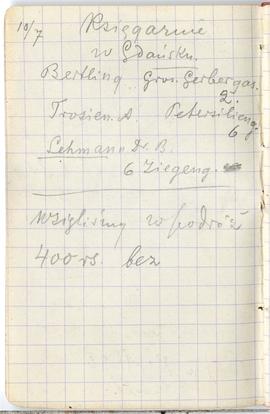 10/7 Księgarnie
w Gdańsku.
Bertling Gros. Gerbergas.
2.
Trosien. A. Petersilieng.
6
Lehmann Dr. B.
6 Ziegeng.
wzięliśmy w podróż
400 rs. bez